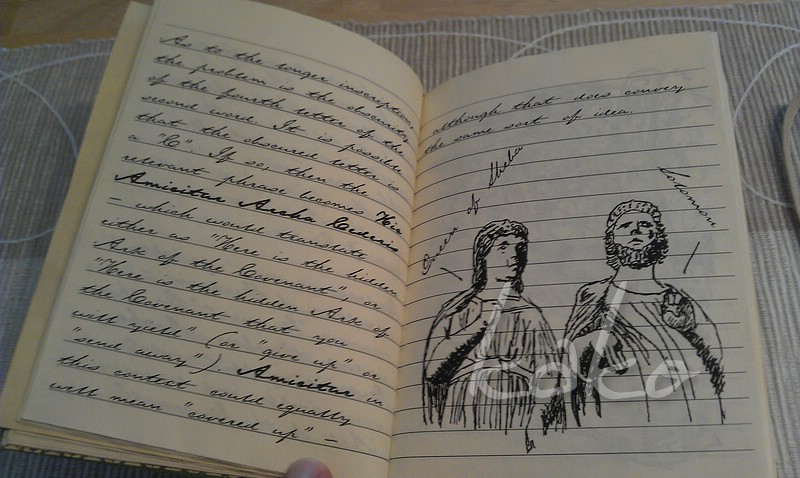 As to the longer inscription,
the problem is the obscurity
of the fourth letter of the
second word. It is possible
that the obscured letter is
a "C". If so, then the
relevant phrase becomes Hic
Amicitur Archa Cederis
- which would translate
either as "Here is the hidden
Ark of the Covenant", or
"Here is the hidden Ark of
the Covenant that you
will yield" (or "give up" or
"send away"). Amicitur in
this context could equally
well mean "covered up" -
although that does convey
the same sort of idea.
Queen of Sheba
Solomon
koko